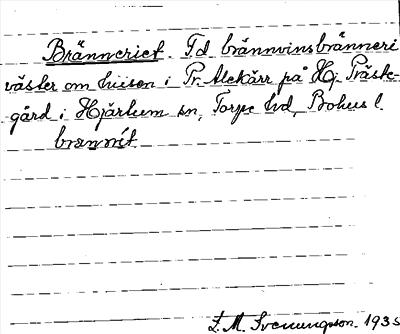 Bränneriet. F.d. brännvinsbränneri
väster om husen i Pr. Alekärr på Hj. Präste-
gård i Hjärtum sn, Torpe hd, Bohus l.
brænnít
L. M. Svenungsson 1935